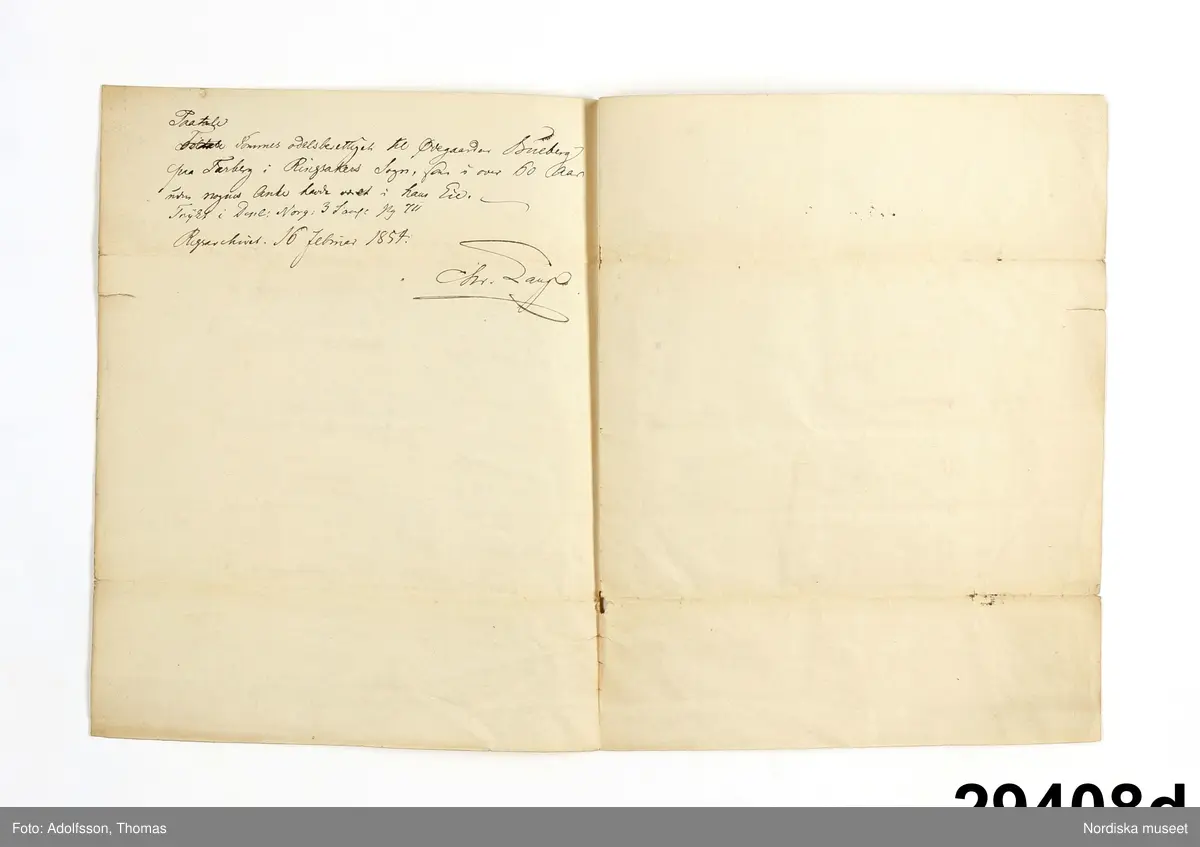 Paatale
dömmes odelsberettiget til Ødegaarden Bueberg
paa Farberg i Ringsakers Sogn, som i over 60 Aar
uden nogens Anke havde været i hans Eie.
Trykt i Dipl: Norg: 3 Saml:
Rigsarchivet. 16 Februar 1854.
Chr. Lange
29408d
Foto: Adolfsson, Thomas
Nordiska museet